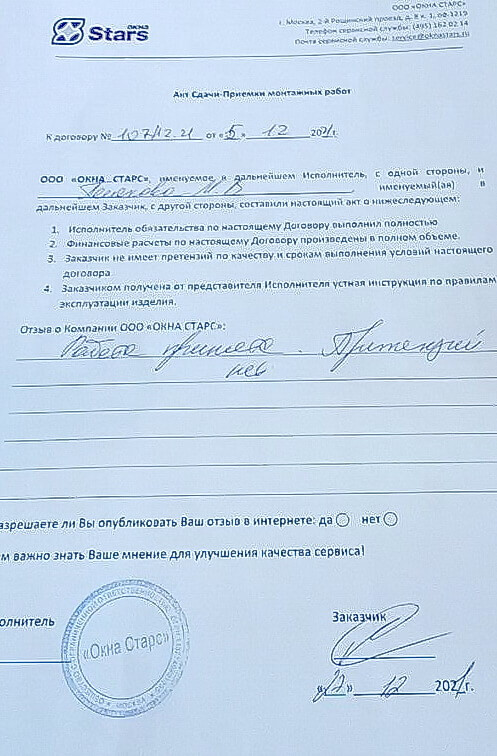 ОКНА
Stars
ООО «ОКНА СТАРС»
г. Москва, 2-й Рощинский проезд, д. 8 к. 1, оф.1219
Телефон сервисной службы: (495) 162 02 14
Почта сервисной службы: service@oknastars.ru
Акт Сдачи-Приемки монтажных работ
К договору № 107/12.21 от «5» 12 2021г.
ООО «ОКНА СТАРС», именуемое в дальнейшем Исполнитель, с одной стороны, и
М. В , именуемый(ая) в
дальнейшем Заказчик, с другой стороны, составили настоящий акт о нижеследующем:
1. Исполнитель обязательства по настоящему Договору выполнил полностью
2. Финансовые расчеты по настоящему Договору произведены в полном объеме.
3. Заказчик не имеет претензий по качеству и срокам выполнения условий настоящего
договора
4. Заказчиком получена от представителя Исполнителя устная инструкция по правилам
эксплуатации изделия.
Отзыв о Компании ООО «ОКНА СТАРС»:
Работа принята. Притензий
нет
азрешаете ли Вы опубликовать Ваш отзыв в интернете: да нет
м важно знать Ваше мнение для улучшения качества сервиса!
олнитель
Заказчик
«Окна Старс»
ОБЩЕСТВО С ОГРАНИЧЕННОЙ ОТВЕТСТВЕННОСТЬЮ
МОСКВА
«27» 12 2021г.